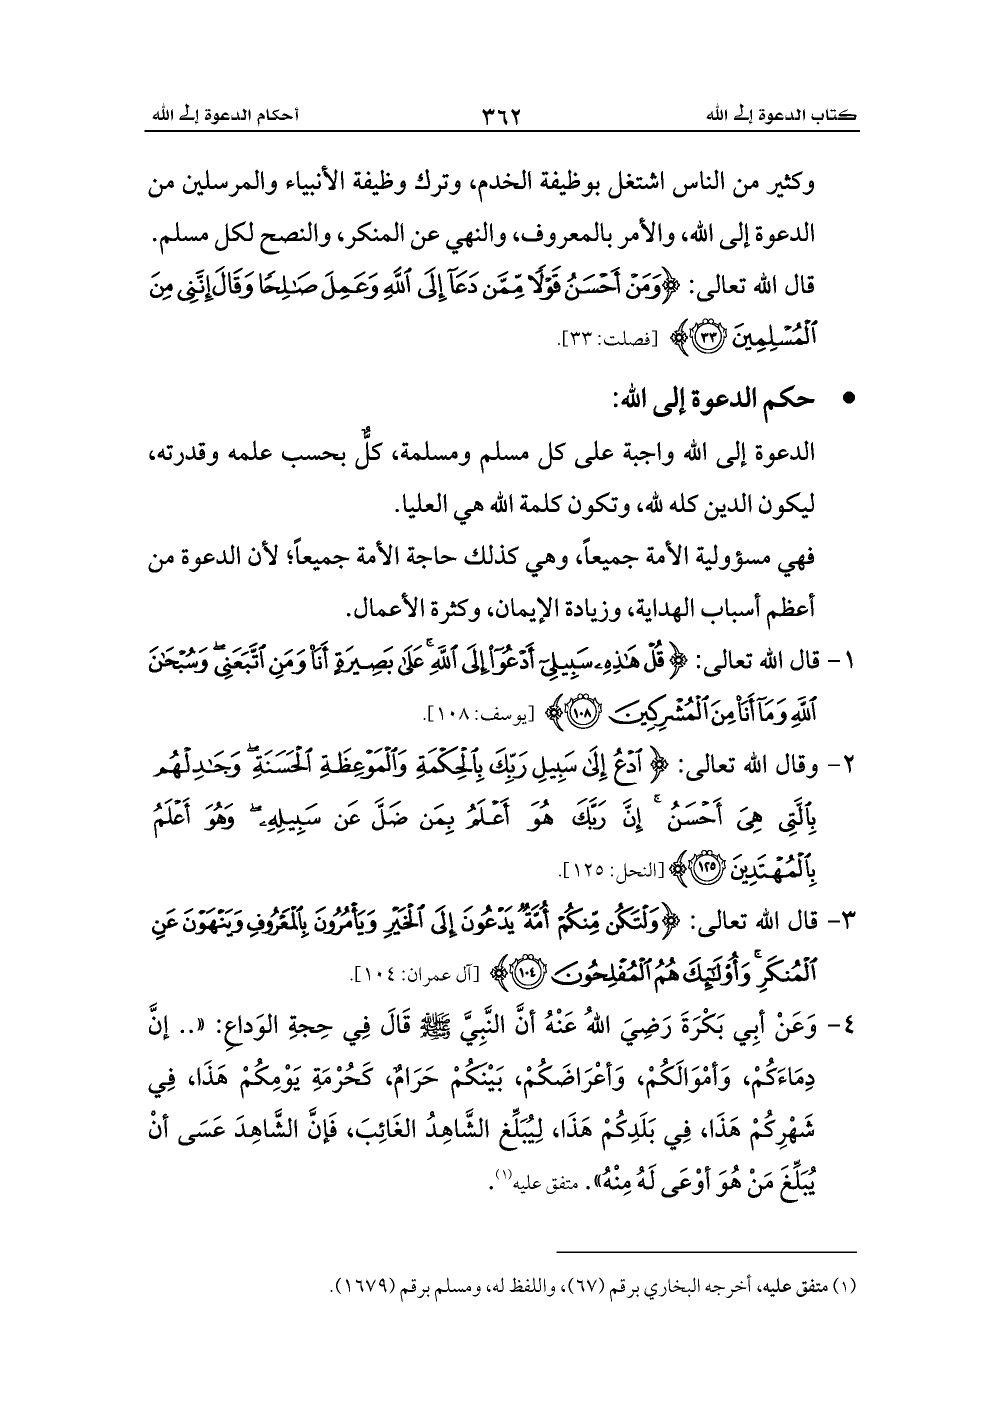 كتاب الدعوة إلى الله ٣٦٢ أحكام الدعوة إلى الله
وكثير من الناس اشتغل بوظيفة الخدم، وترك وظيفة الأنبياء والمرسلين من
الدعوة إلى الله، والأمر بالمعروف، والنهي عن المنكر، والنصح لكل مسلم.
قال الله تعالى: ﴿وَمَنْ أَحْسَنُ قَوْلًا مِّمَّن دَعَآ إِلَى ٱللَّهِ وَعَمِلَ صَٰلِحًا وَقَالَ إِنَّنِى مِنَ
ٱلْمُسْلِمِينَ ٣٣﴾ [فصلت: ٣٣].
• حكم الدعوة إلى الله:
الدعوة إلى الله واجبة على كل مسلم ومسلمة، كلٌّ بحسب علمه وقدرته،
ليكون الدين كله لله، وتكون كلمة الله هي العليا.
فهي مسؤولية الأمة جميعاً، وهي كذلك حاجة الأمة جميعاً؛ لأن الدعوة من
أعظم أسباب الهداية، وزيادة الإيمان، وكثرة الأعمال.
١- قال الله تعالى: ﴿قُلْ هَٰذِهِۦ سَبِيلِىٓ أَدْعُوٓا۟ إِلَى ٱللَّهِ ۚ عَلَىٰ بَصِيرَةٍ أَنَا۠ وَمَنِ ٱتَّبَعَنِى ۖ وَسُبْحَٰنَ
ٱللَّهِ وَمَآ أَنَا۠ مِنَ ٱلْمُشْرِكِينَ ١٠٨﴾ [يوسف: ١٠٨].
٢- وقال الله تعالى: ﴿ٱدْعُ إِلَىٰ سَبِيلِ رَبِّكَ بِٱلْحِكْمَةِ وَٱلْمَوْعِظَةِ ٱلْحَسَنَةِ ۖ وَجَٰدِلْهُم
بِٱلَّتِى هِىَ أَحْسَنُ ۚ إِنَّ رَبَّكَ هُوَ أَعْلَمُ بِمَن ضَلَّ عَن سَبِيلِهِۦ ۖ وَهُوَ أَعْلَمُ
بِٱلْمُهْتَدِينَ ١٢٥﴾ [النحل: ١٢٥].
٣- قال الله تعالى: ﴿وَلْتَكُن مِّنكُمْ أُمَّةٌ يَدْعُونَ إِلَى ٱلْخَيْرِ وَيَأْمُرُونَ بِٱلْمَعْرُوفِ وَيَنْهَوْنَ عَنِ
ٱلْمُنكَرِ ۚ وَأُو۟لَٰٓئِكَ هُمُ ٱلْمُفْلِحُونَ ١٠٤﴾ [آل عمران: ١٠٤].
٤- وَعَنْ أبِي بَكْرَةَ رَضِيَ اللهُ عَنْهُ أنَّ النَّبِيَّ ﷺ قَالَ فِي حِجةِ الوَداعِ: «.. إنَّ
دِمَاءَكُمْ، وَأمْوَالَكُمْ، وَأعْرَاضَكُمْ، بَيْنَكُمْ حَرَامٌ، كَحُرْمَةِ يَوْمِكُمْ هَذَا، فِي
شَهْرِكُمْ هَذَا، فِي بَلَدِكُمْ هَذَا، لِيُبَلِّغ الشَّاهِدُ الغَائِبَ، فَإنَّ الشَّاهِدَ عَسَى أنْ
يُبَلِّغَ مَنْ هُوَ أوْعَى لَهُ مِنْهُ». متفق عليه(١).
(١) متفق عليه، أخرجه البخاري برقم (٦٧)، واللفظ له، ومسلم برقم (١٦٧٩).